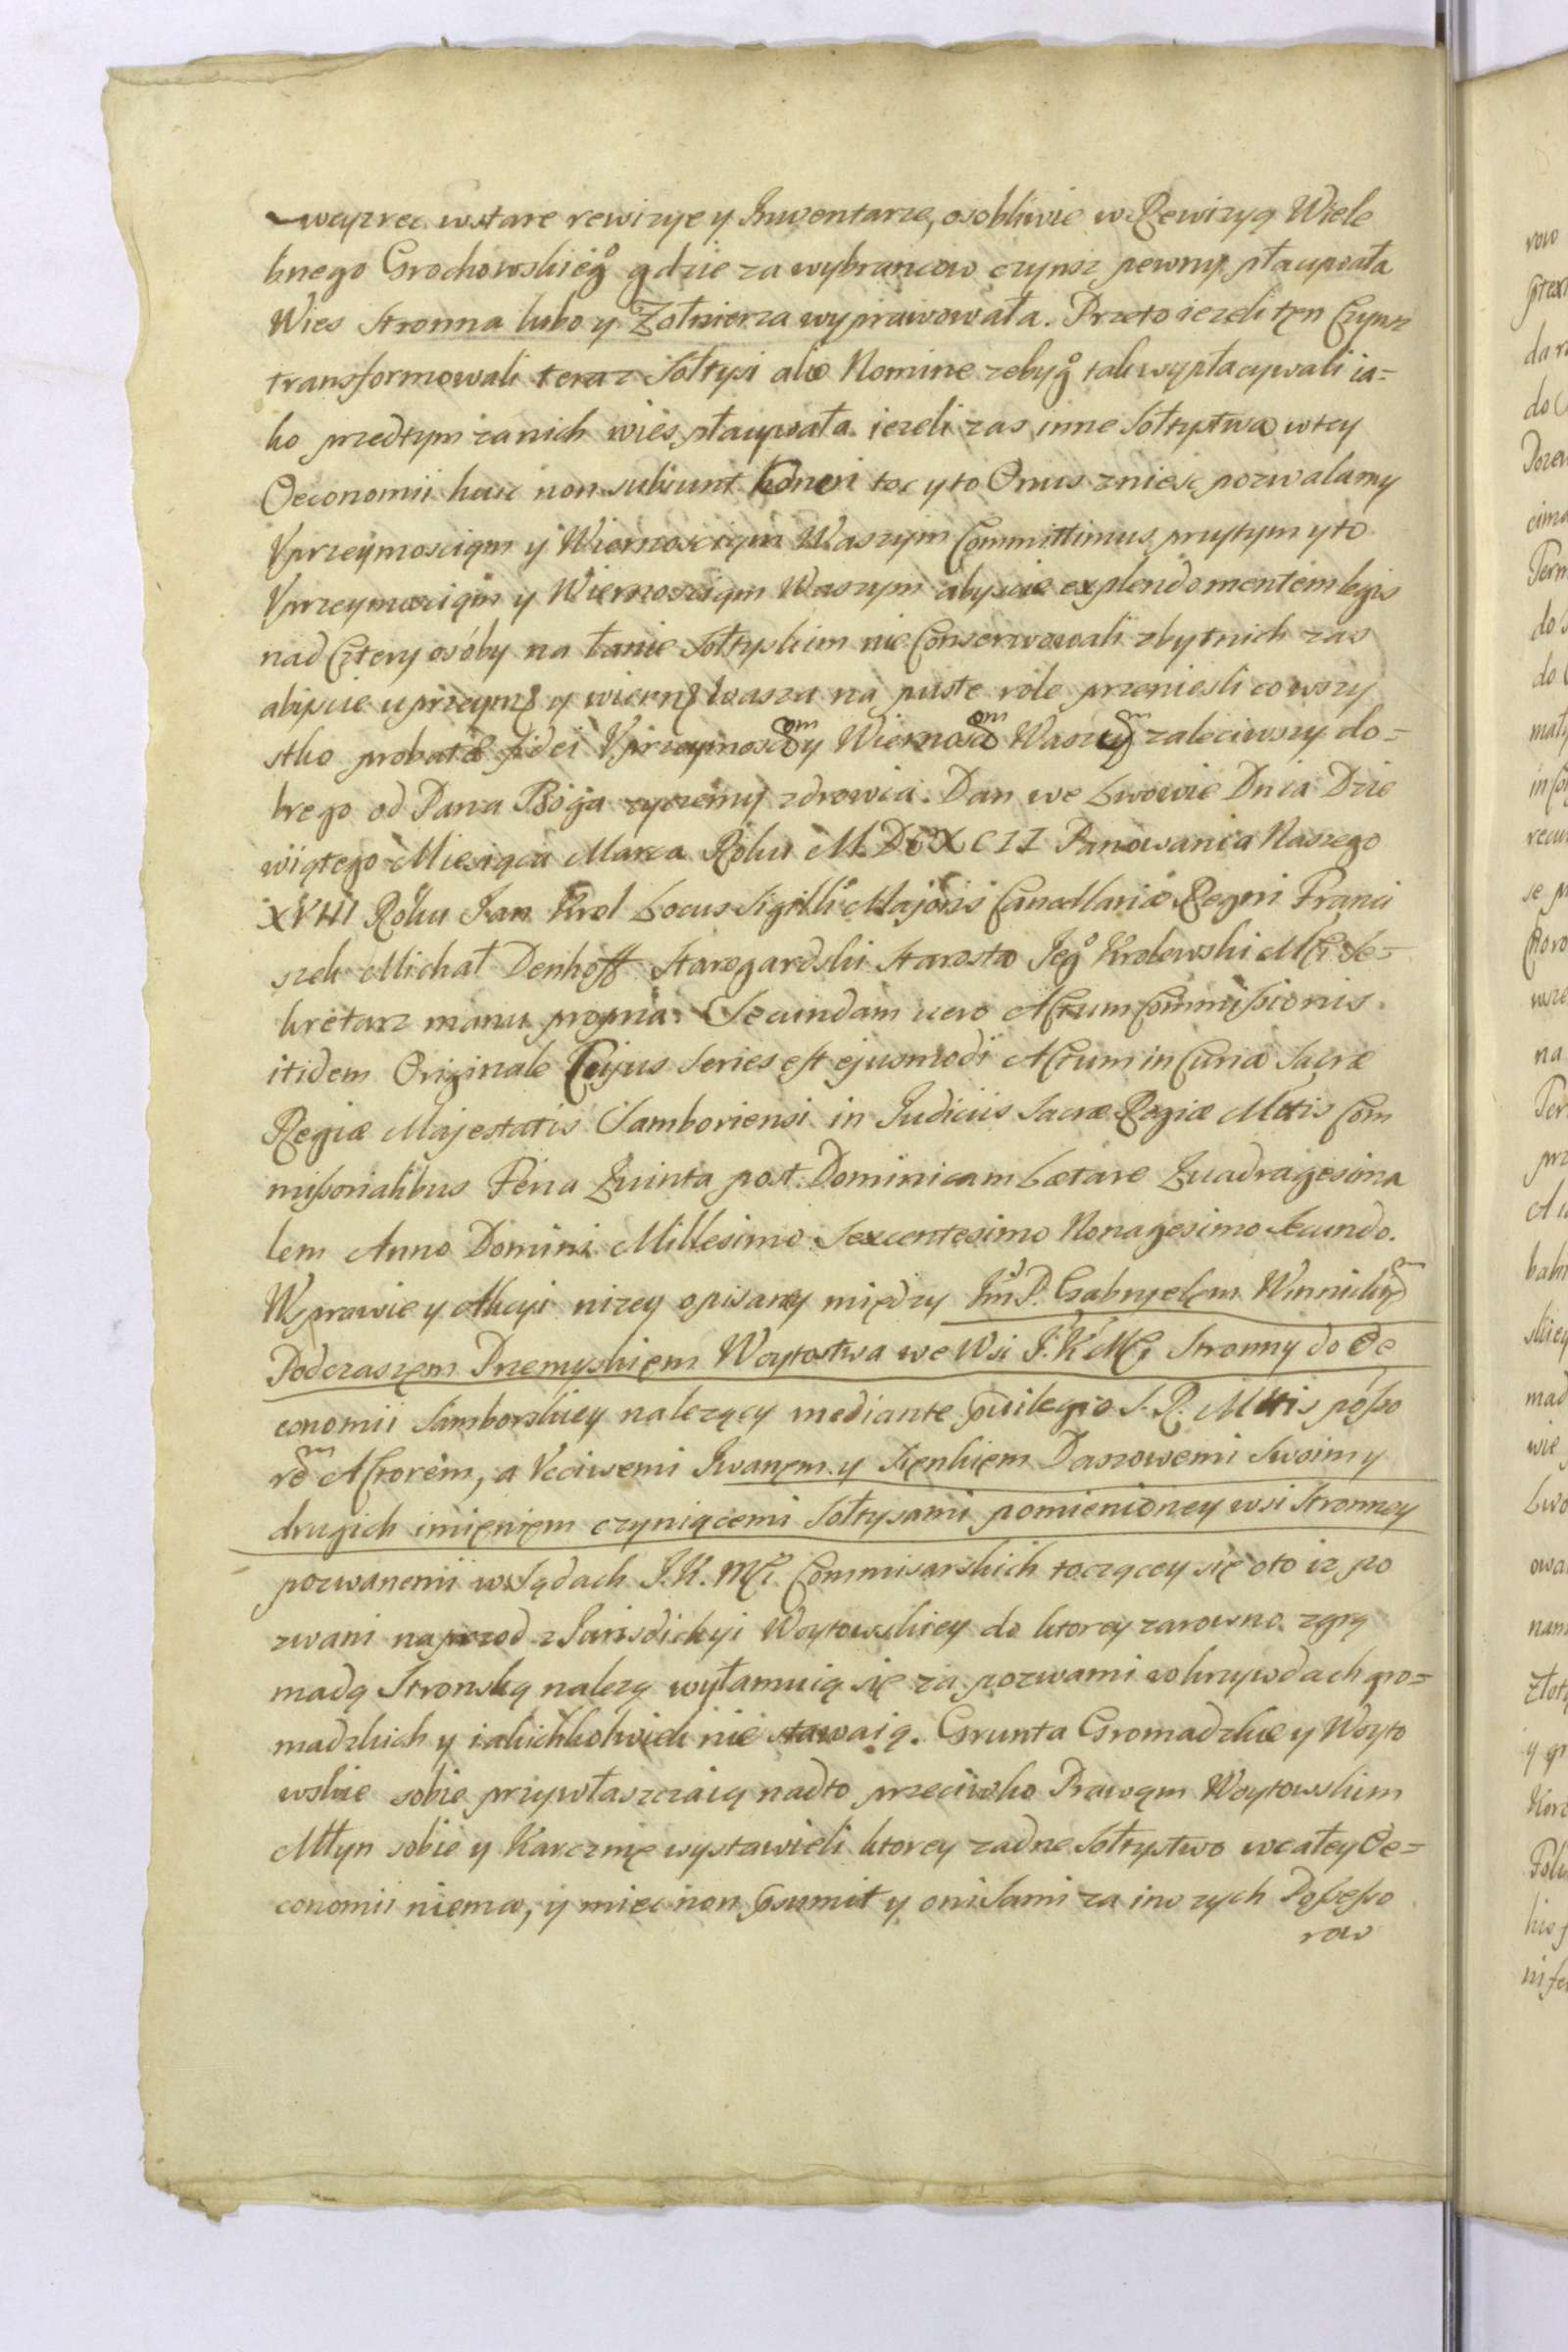 weyzrec w stare rewizye y Inwentarze, osobliwie w Rewizyą Wiele
bnego Grochowskiego gdzie za wybrancow czynsz pewny płacywała
Wies Stronna lubo y Zołnierza wyprawowała. Przeto iezeli ten Czynsz
transformowali teraz Sołtysi alio Nomine zeby go tak wypłacywali ia=
ko przedtym za nich wies płacywała. iezeli zas inne Sołtystwa w tey
Oeconomii huic non subsunt Oneri toc y to Onus zniesc pozwalamy
Uprzeymosciom y Wiernosciom Waszym Committimus przytym y to
Uprzeymosciom y Wiernosciom Waszym abyscie explendo mentem legis
nad Cztery osoby na łanie Sołtyskim nie Conserwowali zbytnich zas
abyscie uprzeym: y wiern: wasza na puste role przeniesli co wszy
stko probatæ fidei Uprzeymosciom y Wiernosciom Waszym zaleciwszy do=
brego od Pana Boga zyczemy zdrowia. Dan we Lwowie Dnia Dzie
wiątego Miesiąca Marca Roku M.DCXCII Panowania Naszego
XVIII Roku Jan Krol Locus Sigilli Majoris Cancellariæ Regni Franci
szek Michał Denhoff Staregardski Starosta Jego Krolewski Mci Se=
kretarz manu propria. Secundam vero Actum Commissionis
itidem Originale Cujus Series est ejusmodi Actum in Curia Sacræ
Regiæ Majestatis Samboriensi in Judiciis Sacræ Regiæ Mttis Com
missorialibus Feria Quinta post Dominicam Lætare Quadragesima
lem Anno Domini Millesimo Sexcentesimo Nonagesimo Secundo.
W Sprawie y Akcyi nizey opisaney między Jm P. Gabryelem Winnickim
Podczaszem Przemyskiem Woytostwa we Wsi J. K. Mci Stronny do Oe
conomii Samborskiey nalezący mediante privilegio S. R. Mttis posso
rem Actorem, a Ucciwemi Iwanem y Sienkiem Daszowemi Swoim y
drugich imieniem czyniącemi Sołtysami pomienioney wsi Stronney
pozwanemi w Sądach J. K. Mci Commisarskich toczącey się oto iz po
zwani naprzod z Jurisdickyi Woytowskiey do ktorey zarowno z gro
madą Stronską nalezą wyłamuią się za pozwami w krzywdach gro=
madzkich y iakichkolwiek nie stawaią. Grunta Gromadzkie y Woyto
wskie sobie przywłaszczaią nadto przeciwko Prawom Woytowskim
Młyn sobie y Karczmę wystawieli ktorey zadne Sołtystwo w całey Oe=
conomii niema, y miec non psumit y oni Sami za inszych Possesso
row